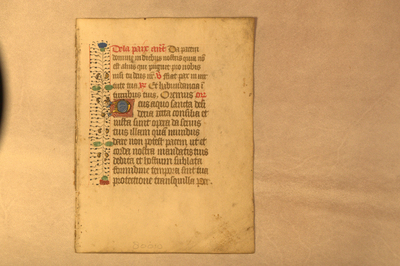 De la paix ant̄. Da pacem
domine in diebus nostris quia nō
est alius qui pugnet pro nobis
nisi tu deus nr̄ V̄ Fiat pax in uir
tute tua R̄ Et habundancia ī
turribus tuis. Oremus
Deus a quo sancta desi
deria recta consilia et
iusta sunt opera da seruis
tuis illam quā mundus
dare non potest pacem ut et
corda nostra mandatis tuis
dedita et hostium sublata
formidine tempora sint tua
protectione tranquilla Per